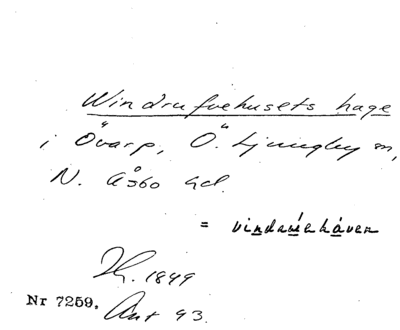 Windrufvehusets hage
i Övarp, Ö. Ljungby sn,
N. Åsbo hd.
= vindruehåven
Th. 1849
Nr 7259. Ant 93.